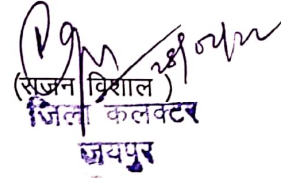 (सृजन विशाल)
जिला कलक्टर
जयपुर